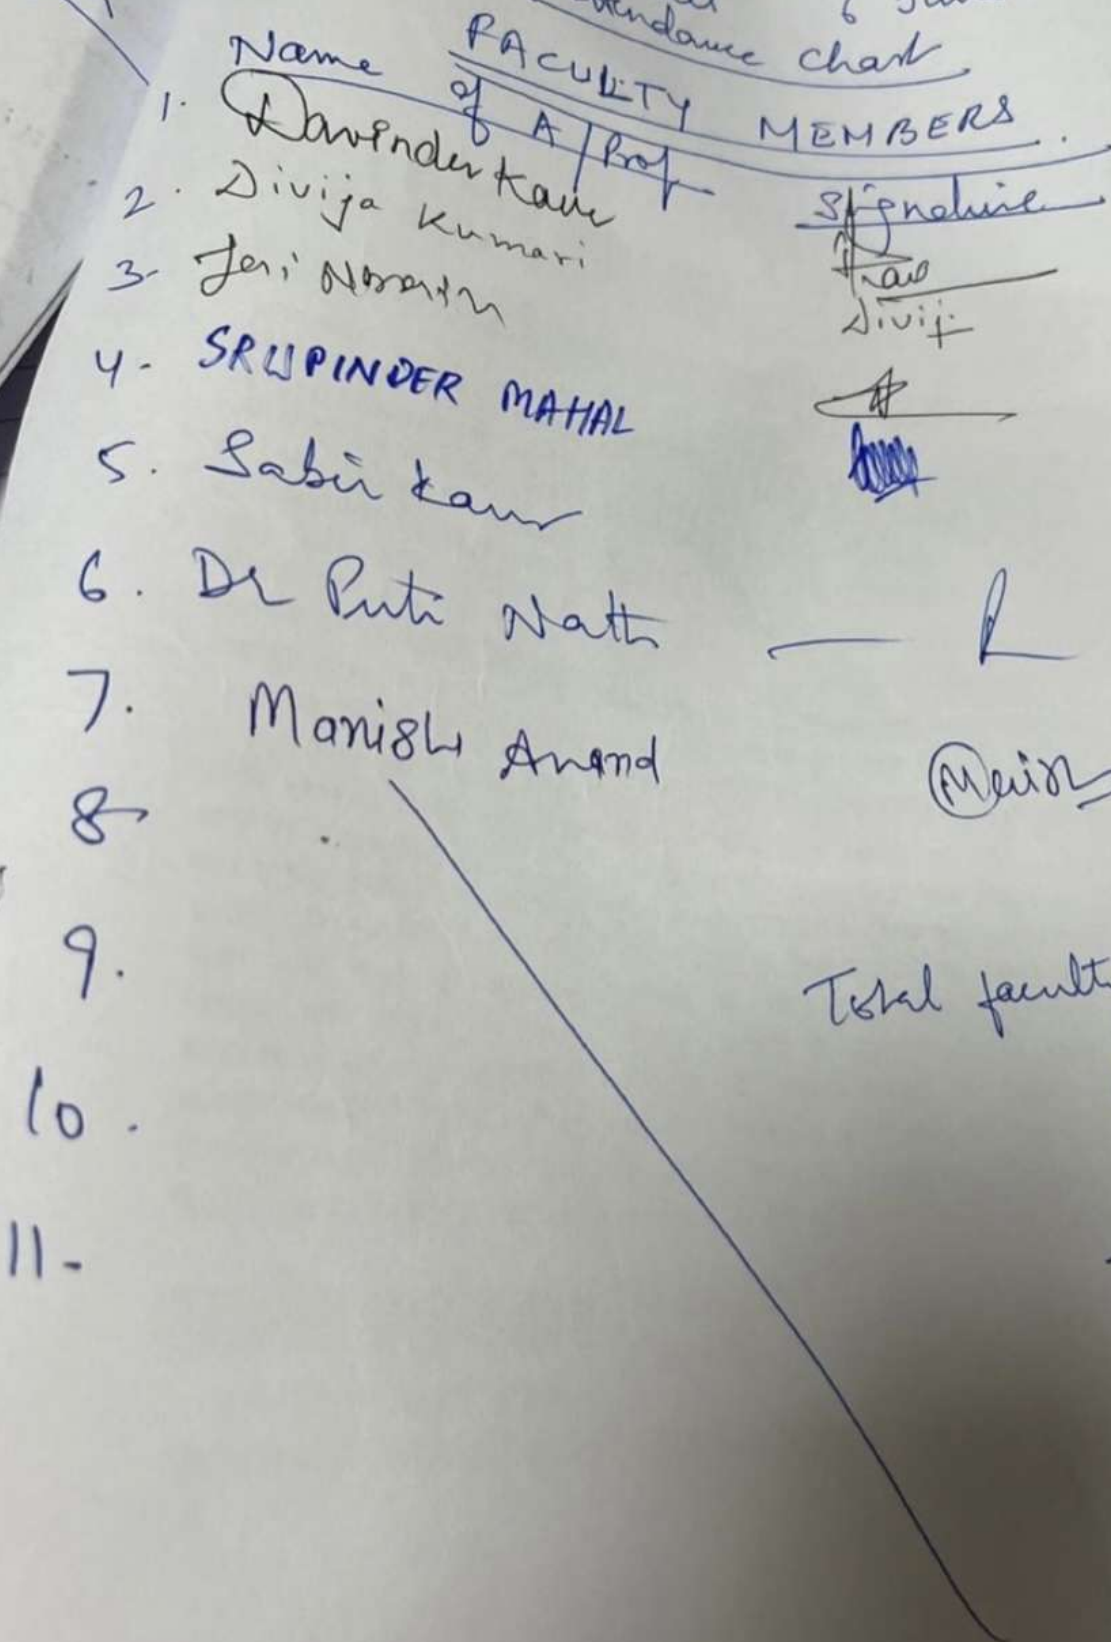 6
Attendance chart
FACULTY MEMBERS
Name of A/Prof
Signature
1. Davinder Kaur
Kaur
2. Divija Kumari
Divij
3-
4- SRUPINDER MAHAL
5. Sabir Kaur
6. Dr Puti Nath —
7. Manish Anand
8-
9.
Total facult
10.
11-